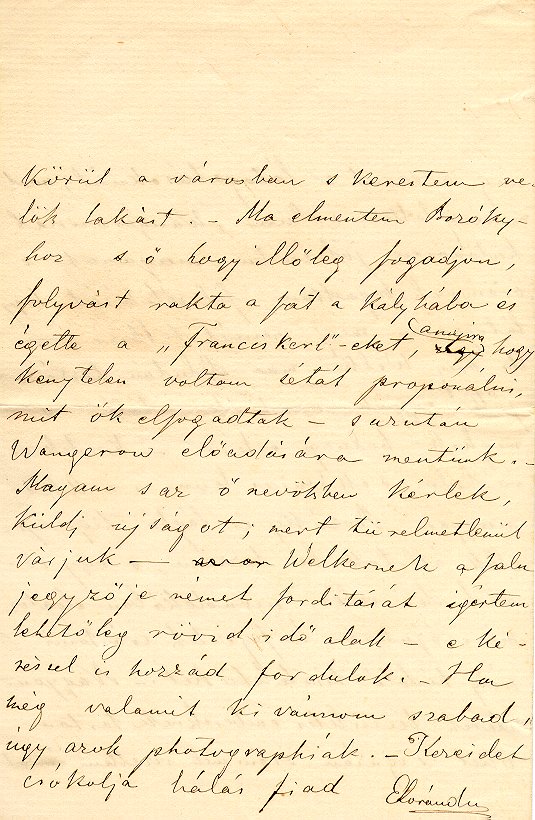 Körül a városban s kerestem ve-
lök lakást. - Ma elmentem Bozóky-
hoz s ő hogy illőleg fogadjon,
folyvást rakta a fát a kályhába és
égette a „Franciskerl"-eket, annyira hogy
kénytelen voltam sétát proponálni,
mit ők elfogadtak - s azután
Wangerow előadására mentünk. -
Magam s az ő nevökben kérlek,
küldj újságot; mert türelmetlenül
várjuk - Welkernek a falu
jegyzője német fordítását igértem
lehetőleg rövid idő alatt - e ké-
réssel is hozzád fordulok. - Ha
még valamit kivánnom szabad,
úgy azok photographiák. - Kezeidet
csókolja hálás fiad Lorándu